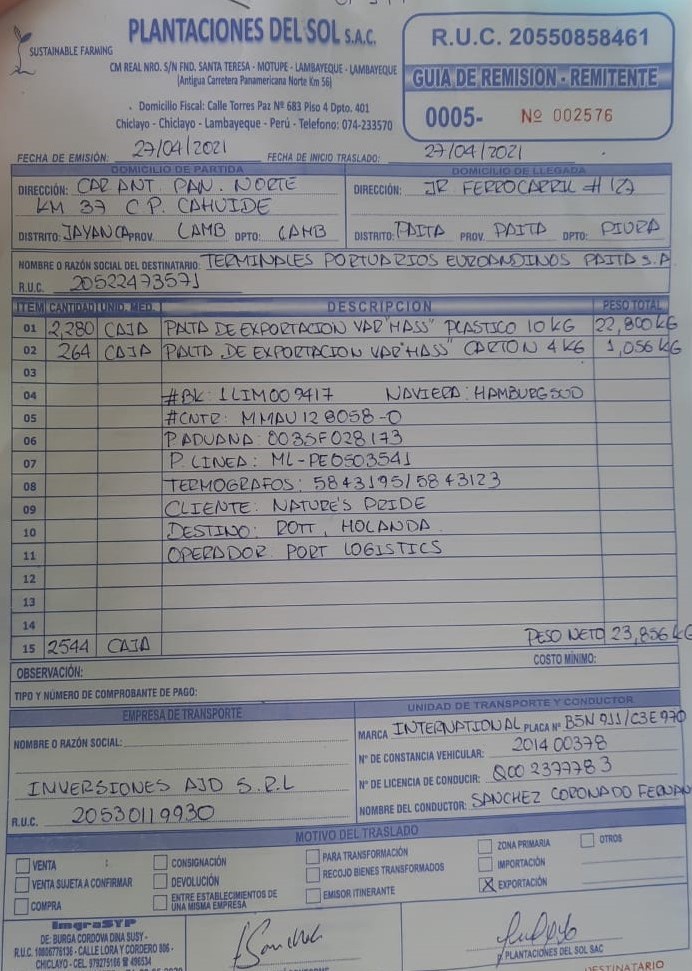 PLANTACIONES DEL SOL S.A.C.
SUSTAINABLE FARMING
CM REAL NRO. S/N FND. SANTA TERESA - MOTUPE - LAMBAYEQUE - LAMBAYEQUE
(Antigua Carretera Panamericana Norte Km 56)
Domicilio Fiscal: Calle Torres Paz Nº 683 Piso 4 Dpto. 401
Chiclayo - Chiclayo - Lambayeque - Perú - Telefono: 074-233570
R.U.C. 20550858461
GUIA DE REMISION - REMITENTE
0005- Nº 002576
FECHA DE EMISIÓN: 27/04/2021 FECHA DE INICIO TRASLADO: 27/04/2021
DOMICILIO DE PARTIDA
DIRECCIÓN: CAR ANT. PAN. NORTE
KM 37 C.P. CAHUIDE
DISTRITO: JAYANCA PROV. LAMB DPTO: LAMB
DOMICILIO DE LLEGADA
DIRECCIÓN: JR FERROCARRIL # 127
DISTRITO: PAITA PROV. PAITA DPTO: PIURA
NOMBRE O RAZÓN SOCIAL DEL DESTINATARIO: TERMINALES PORTUARIOS EUROANDINOS PAITA S.A
R.U.C. 20522473571
ITEM CANTIDAD UNID. MED. DESCRIPCION PESO TOTAL
01 2,280 CAJA PALTA DE EXPORTACION VAR "HASS" PLASTICO 10 KG 22,800 KG
02 264 CAJA PALTA DE EXPORTACION VAR "HASS" CARTON 4 KG 1,056 KG
03
04 #BK: 1LIM009417 NAVIERA: HAMBURG SUD
05 #CNTR: MMAU 128058-0
06 P. ADUANA: 0035F028173
07 P. LINEA: ML-PE0503541
08 TERMOGRAFOS: 5843195/5843123
09 CLIENTE: NATURE'S PRIDE
10 DESTINO: ROTT, HOLANDA
11 OPERADOR PORT LOGISTICS
12
13
14
15 2544 CAJA PESO NETO 23,856 KG
OBSERVACIÓN: COSTO MÍNIMO:
TIPO Y NÚMERO DE COMPROBANTE DE PAGO:
EMPRESA DE TRANSPORTE
NOMBRE O RAZÓN SOCIAL:
INVERSIONES AJD S.R.L
R.U.C. 20530119930
UNIDAD DE TRANSPORTE Y CONDUCTOR
MARCA INTERNATIONAL PLACA Nº B5N 911/C3E 970
Nº DE CONSTANCIA VEHICULAR: 201400378
Nº DE LICENCIA DE CONDUCIR: Q002377783
NOMBRE DEL CONDUCTOR: SANCHEZ CORONADO FERNAN
MOTIVO DEL TRASLADO
VENTA : CONSIGNACIÓN PARA TRANSFORMACIÓN ZONA PRIMARIA OTROS
VENTA SUJETA A CONFIRMAR DEVOLUCIÓN RECOJO BIENES TRANSFORMADOS IMPORTACIÓN
COMPRA ENTRE ESTABLECIMIENTOS DE UNA MISMA EMPRESA EMISOR ITINERANTE X EXPORTACIÓN
ImgraSYP
DE: BURGA CORDOVA DINA SUSY -
R.U.C. 10006776136 - CALLE LORA Y CORDERO 806 -
CHICLAYO - CEL. 979275186 ☎ 496534
P. PLANTACIONES DEL SOL SAC
DESTINATARIO